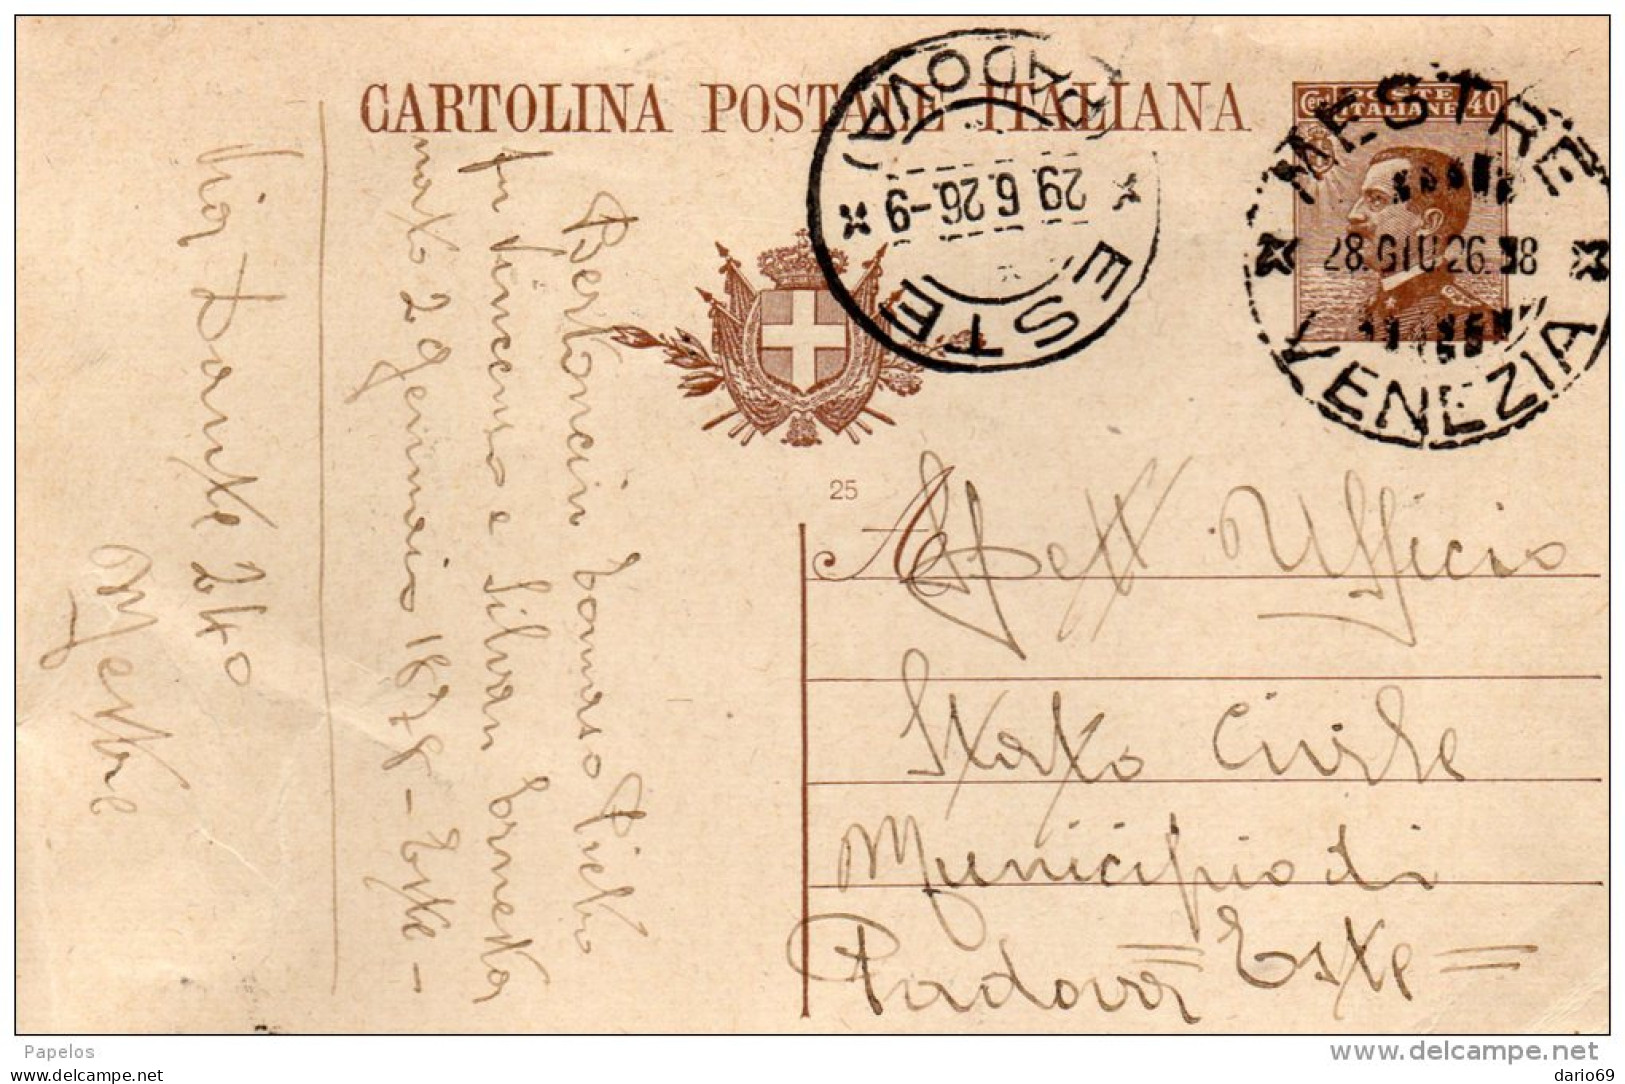 CARTOLINA POSTALE ITALIANA
Cent POSTE ITALIANE 40
MESTRE
28.GIU 26. 18
VENEZIA
(PADOVA)
29.6.26.-9
ESTE
25
Spett Ufficio
Stato Civile
Municipio di
Padova = Este =
Bertoncin Tommaso Pietro
fu Vincenzo e Silvan Erneta
nato 2 Gennaio 1878 - Este -
Via Dante 240
Mestre
Papelos
www.delcampe.net
dario69